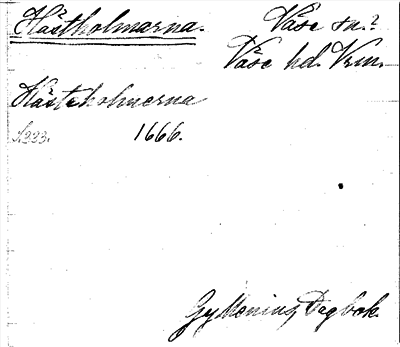 Hästholmarna.
Väse sn.?
Väse hd. Vrm.
Hästeholmerna
S. 233. 1666.
Gyllenius Dagbok